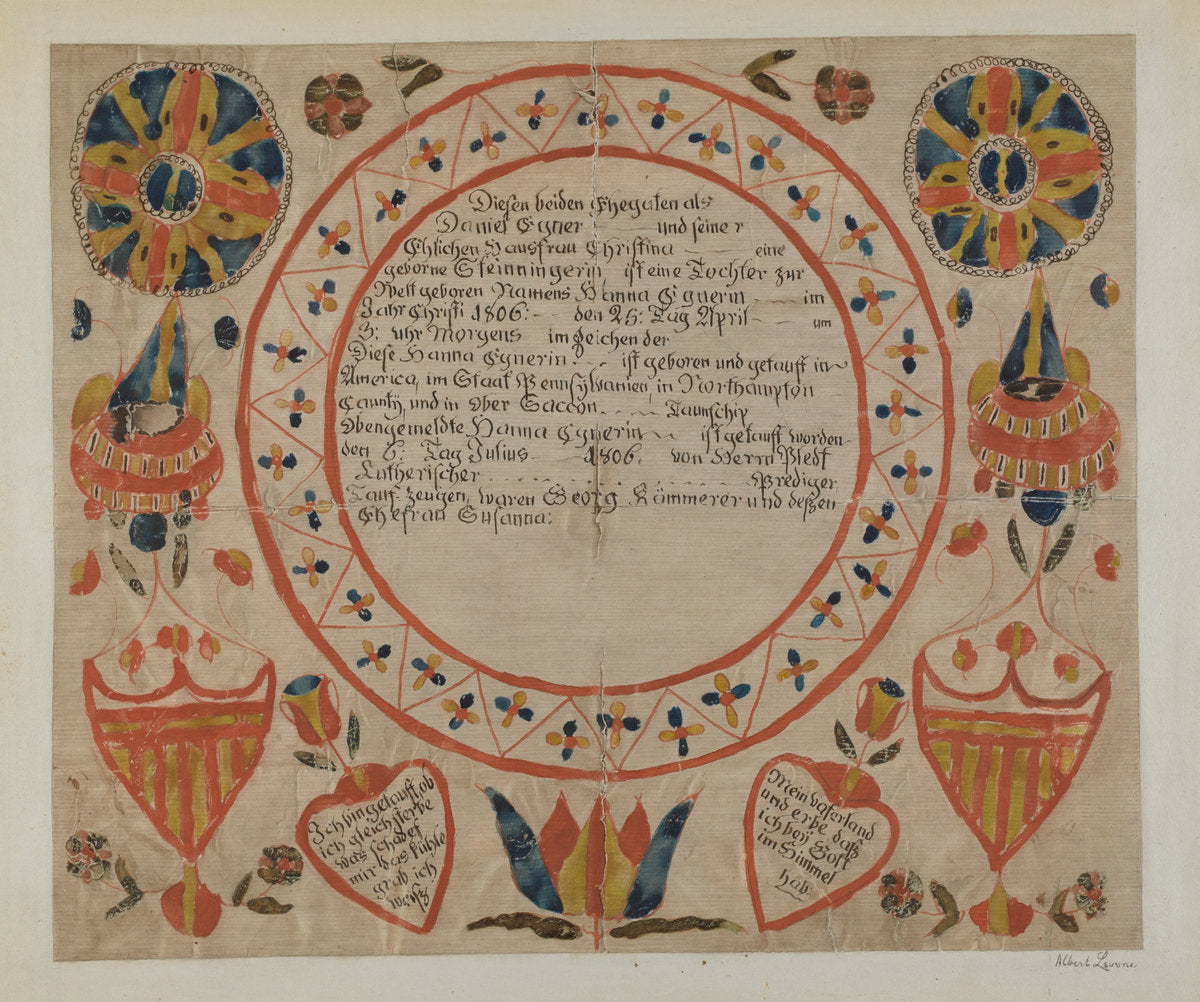 Diesen beiden Ehegaten als
Daniel Egner und seiner
Ehlichen Hausfrau Christina eine
geborne Steinningerin ist eine Tochter zur
Welt geboren Namens Hanna Egnerin im
Jahr Christi 1806: den 25: Tag April um
3: uhr Morgens im Zeichen der
Diese Hanna Egnerin ist geboren und getauft in
America, im Staat Pennsylvanien, in Northampton
Caunty, und in Ober Saccon Taunschip
Obengemeldte Hanna Egnerin ist getauft worden
den 6: Tag Julius 1806. von Herrn
Lutherischer Prediger,
Tauf-Zeugen, waren Georg Kämmerer und deßen
Ehefrau Susanna:
Ich bin getauft, ob
ich gleich sterbe
was schadet
mir das kühle
grab ich
weiß
Mein vaterland
und erbe daß
ich bey Gott
im Himmel
hab.
Albert Levone